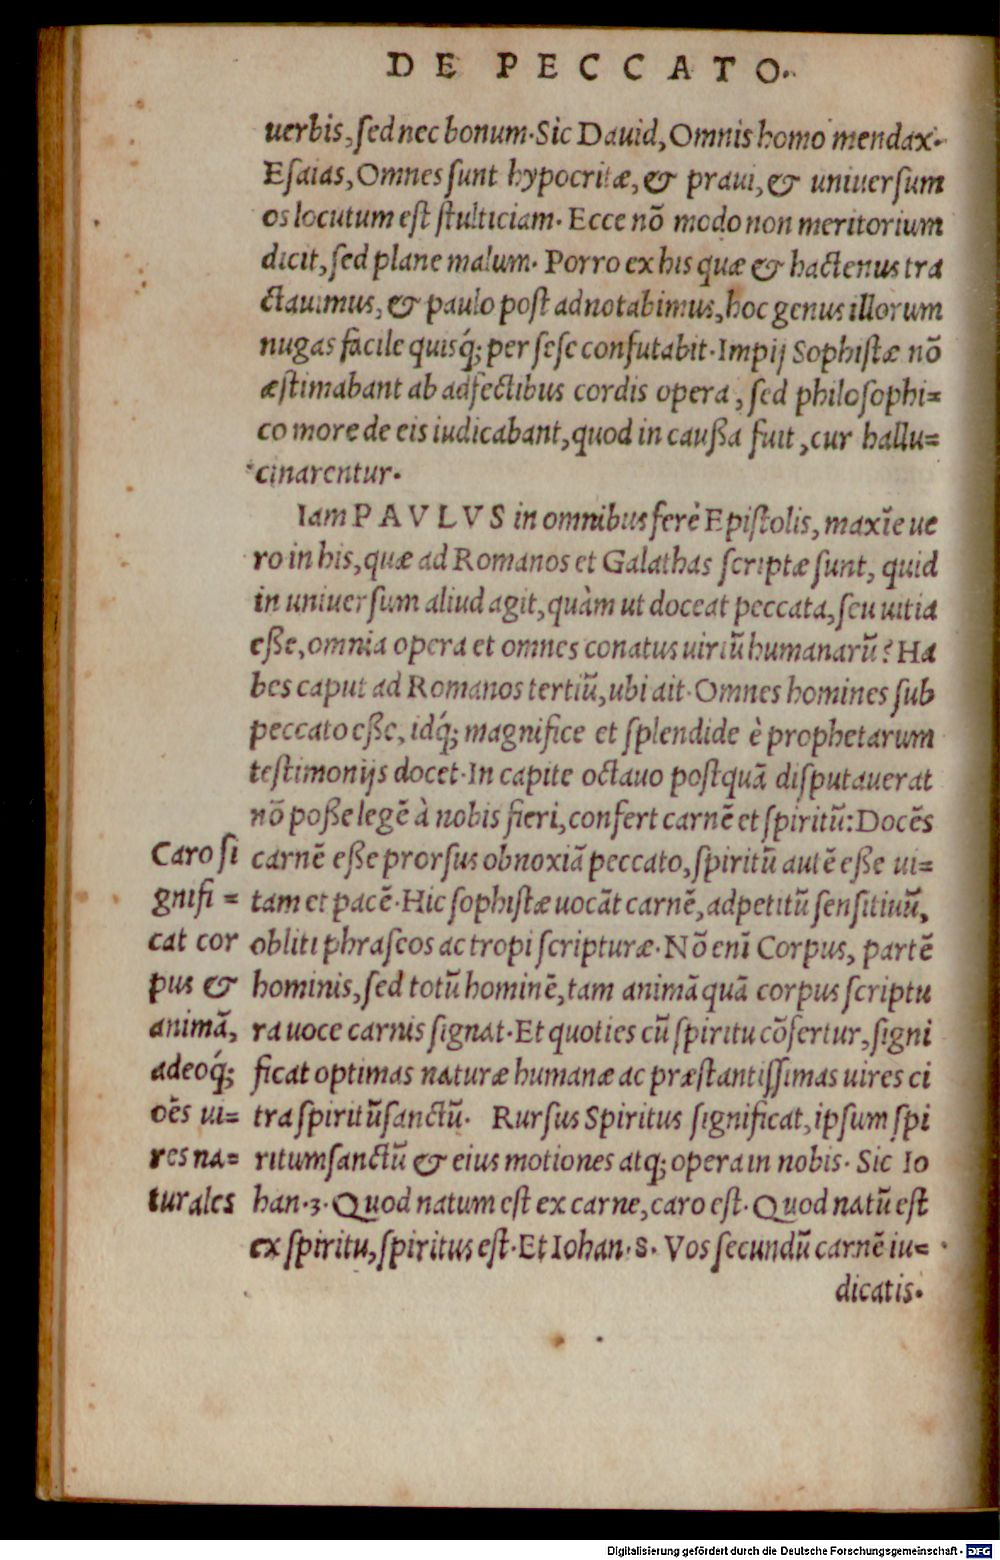 DE PECCATO.
uerbis, sed nec bonum. Sic Dauid, Omnis homo mendax.
Esaias, Omnes sunt hypocritæ, & praui, & uniuersum
os locutum est stulticiam. Ecce nō modo non meritorium
dicit, sed plane malum. Porro ex his quæ & hactenus tra
ctauimus, & paulo post adnotabimus, hoc genus illorum
nugas facile quisq́; per sese confutabit. Impij Sophistæ nō
æstimabant ab adfectibus cordis opera, sed philosophi=
co more de eis iudicabant, quod in caußa fuit, cur hallu=
cinarentur.
Iam PAVLVS in omnibus ferè Epistolis, maxīe ue
ro in his, quæ ad Romanos et Galathas scriptæ sunt, quid
in uniuersum aliud agit, quàm ut doceat peccata, seu uitia
eße, omnia opera et omnes conatus uiriū humanarū? Ha
bes caput ad Romanos tertiū, ubi ait. Omnes homines sub
peccato eße, idq́; magnifice et splendide è prophetarum
testimonijs docet. In capite octauo postquā disputauerat
nō poße legē à nobis fieri, confert carnē et spiritū: Docēs
carnē eße prorsus obnoxiā peccato, spiritū autē eße ui=
tam et pacē. Hic sophistæ uocāt carnē, adpetitū sensitiuū,
obliti phraseos ac tropi scripturæ. Nō enī Corpus, partē
hominis, sed totū hominē, tam animā quā corpus scriptu
ra uoce carnis signat. Et quoties cū spiritu cōfertur, signi
ficat optimas naturæ humanæ ac præstantissimas uires ci
tra spiritūsanctū. Rursus Spiritus significat, ipsum spi
ritumsanctū & eius motiones atq; opera in nobis. Sic Io
han. 3. Quod natum est ex carne, caro est. Quod natū est
ex spiritu, spiritus est. Et Iohan. 8. Vos secundū carnē iu=
dicatis.
Caro si
gnifi =
cat cor
pus &
animā,
adeoq́;
oēs ui=
res na=
turales
Digitalisierung gefördert durch die Deutsche Forschungsgemeinschaft - DFG